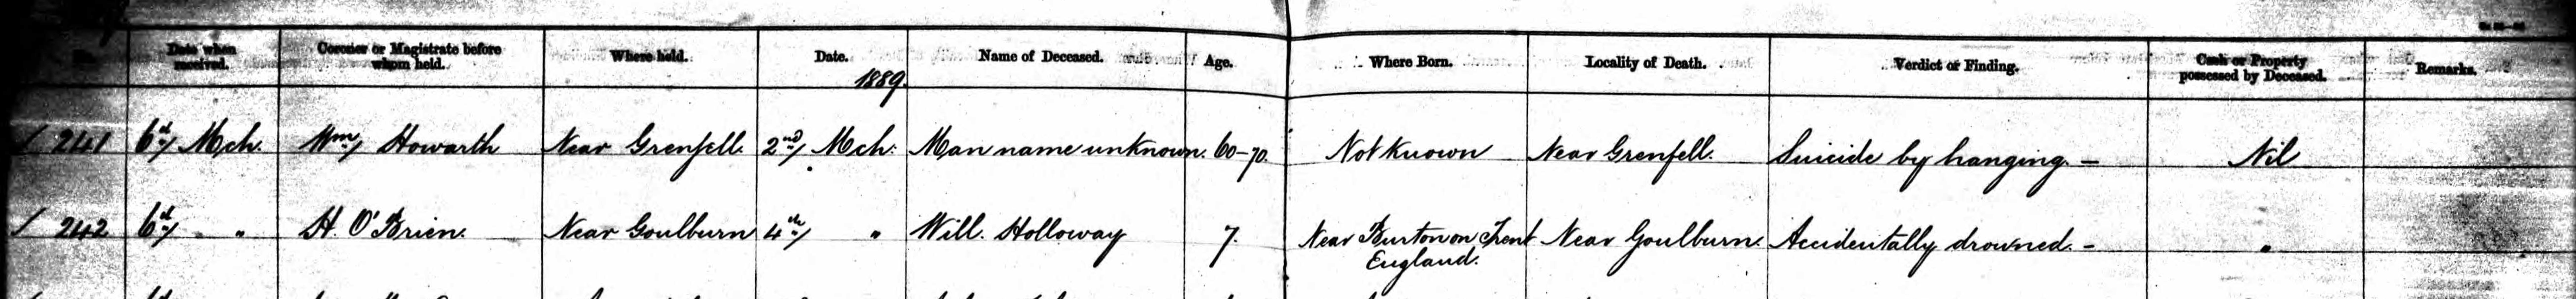 No. Date when received. Coroner or Magistrate before whom held. Where held. Date. Name of Deceased. Age. Where Born. Locality of Death. Verdict or Finding. Cash or Property possessed by Deceased. Remarks.
1889.
/ 241 6th/ Mch. Wm/ Howarth Near Grenfell. 2nd/ Mch. Man name unknown. 60-70. Not known Near Grenfell. Suicide by hanging. – Nil
/ 242 6th/ " H. O'Brien. Near Goulburn 4th/ " Will. Holloway 7. Near Burton on Trent England. Near Goulburn. Accidentally drowned. – "